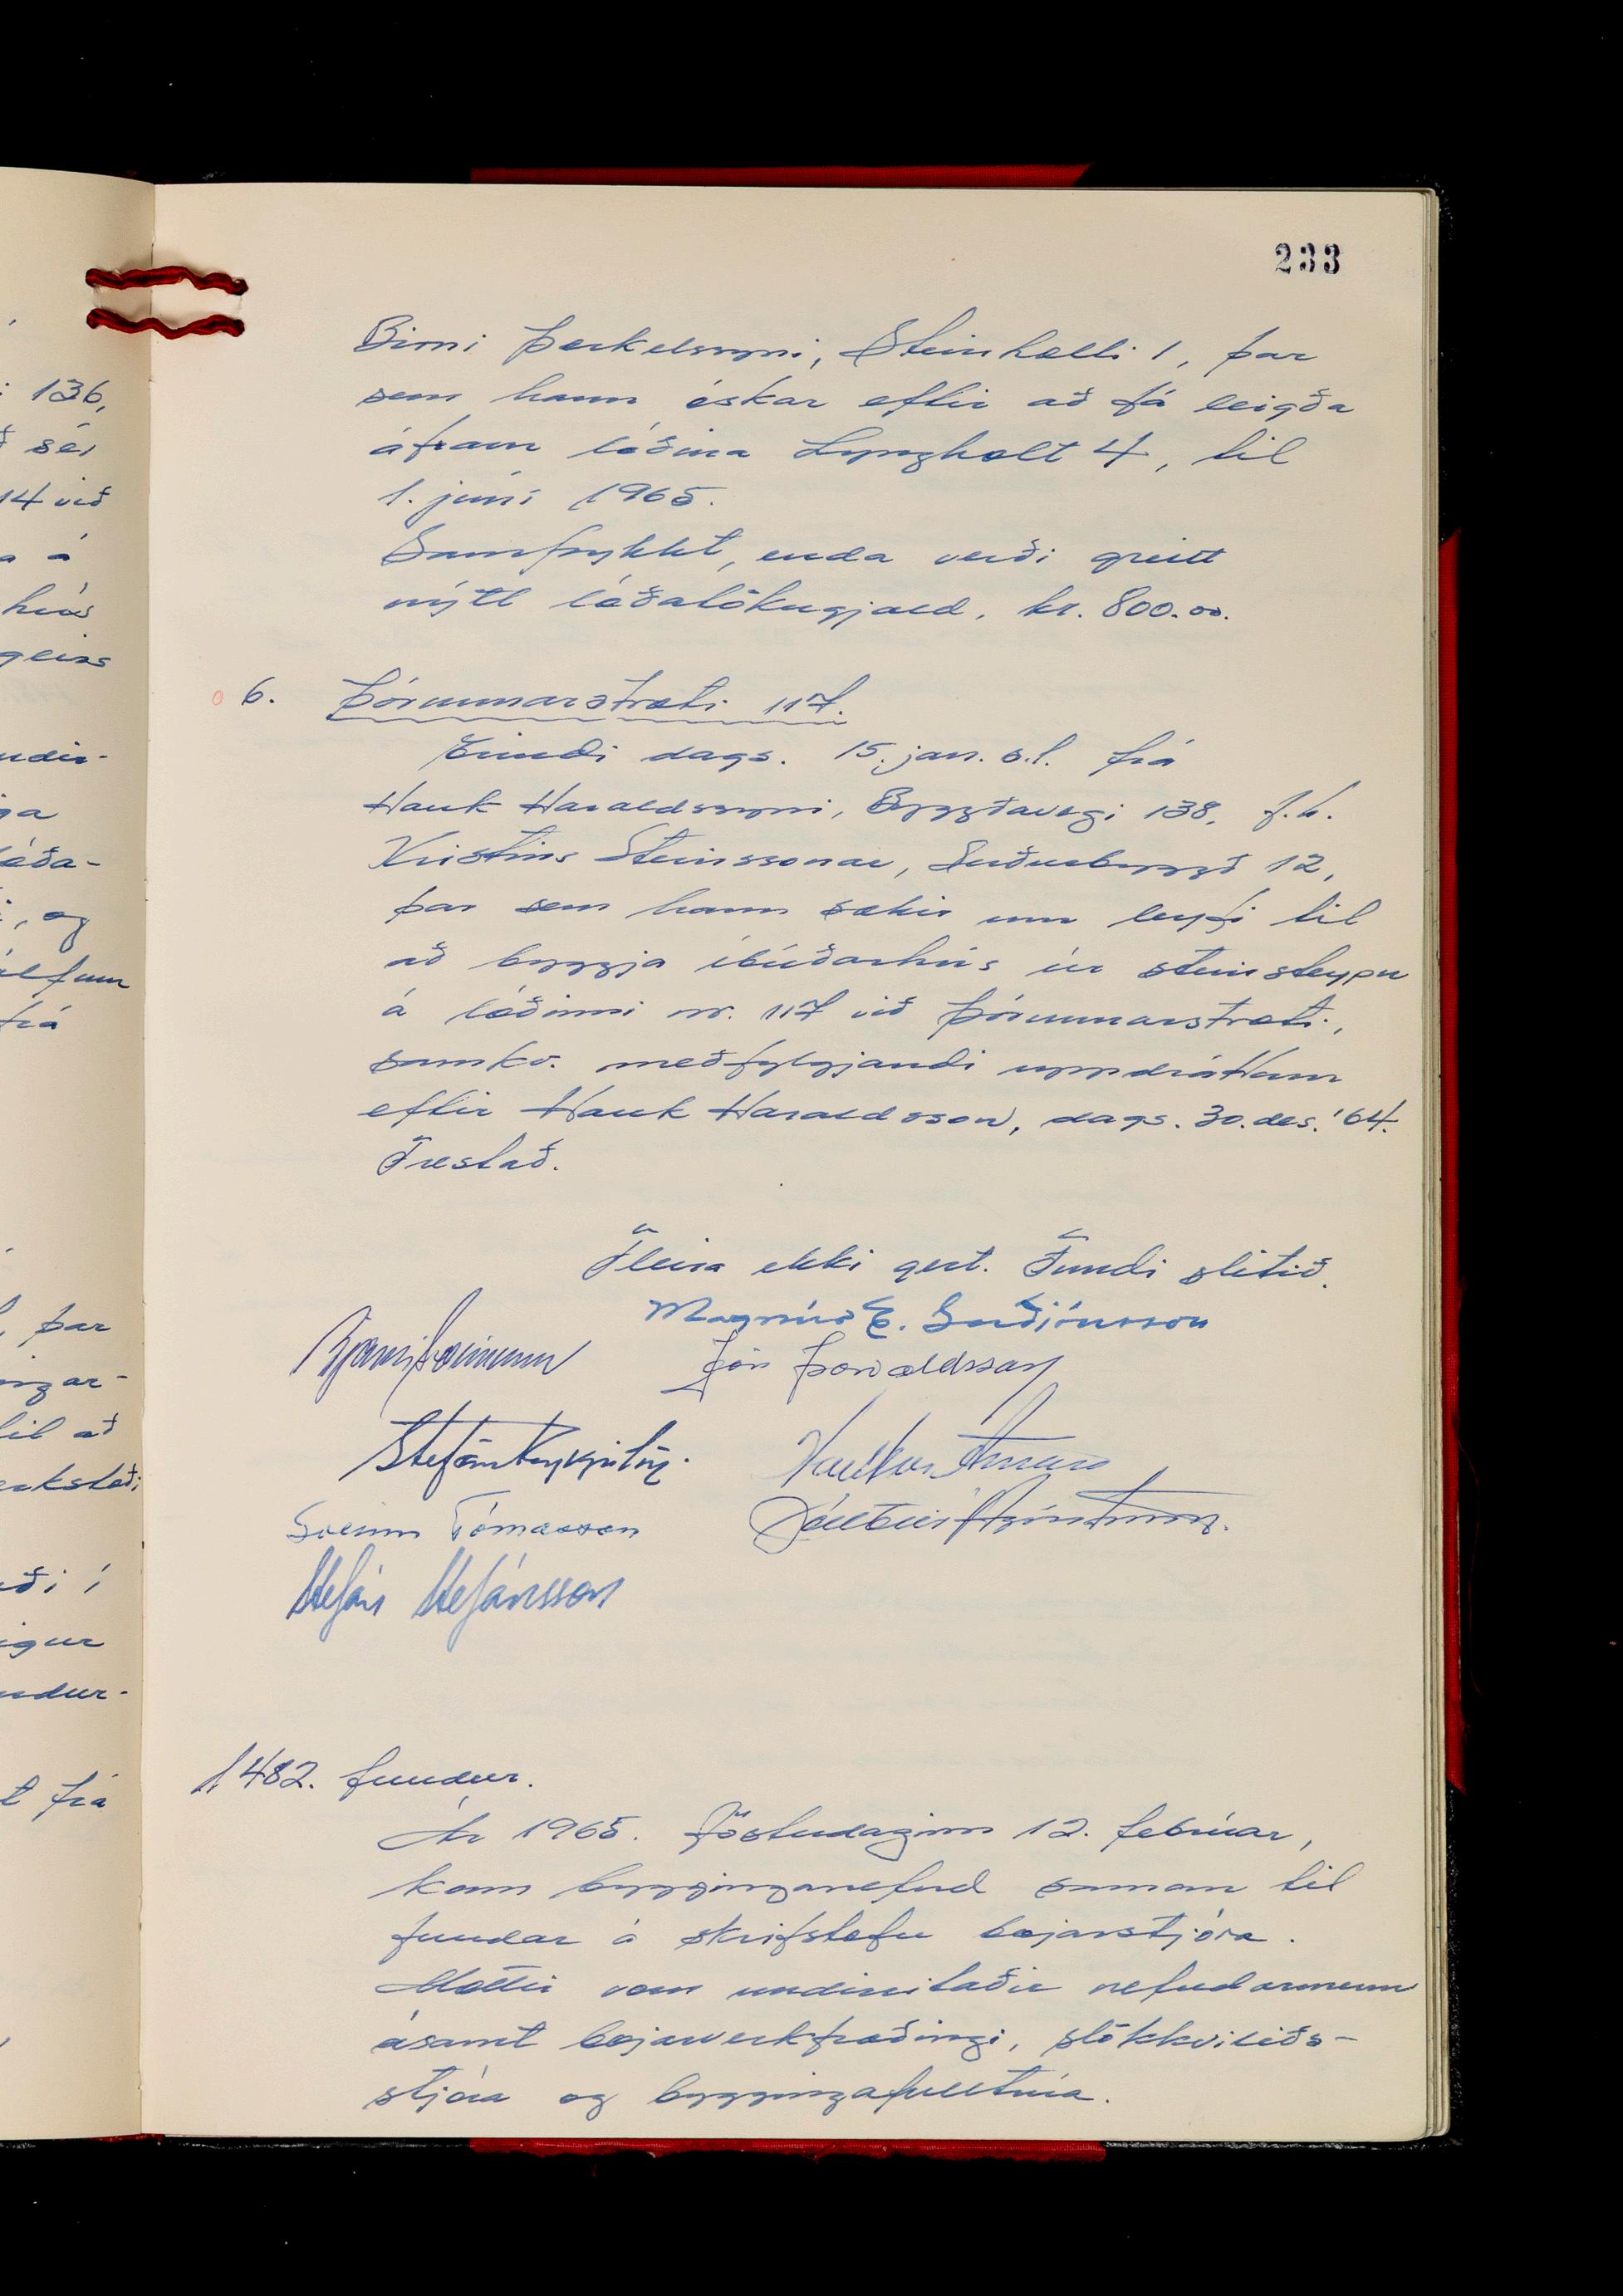 233
Birni Þorkelssyni, Steinholti 1, þar
sem hann óskar eftir að fá leigða
áfram lóðina Lyngholt 4, til
1. júní 1965.
Samþykkt, enda verði greitt
nýtt lóðatökugjald, kr. 800.00.
6. Þórunnarstræti 117.
Erindi dags. 15. jan. s.l. frá
Hauk Haraldssyni, Byggðavegi 138, f.h.
Kristins Steinssonar, Suðurbyggð 12,
þar sem hann sækir um leyfi til
að byggja íbúðarhús úr steinsteypu
á lóðinni nr. 117 við Þórunnarstræti,
samkv. meðfylgjandi uppdráttum
eftir Hauk Haraldsson, dags. 30. des. '64.
Frestað.
Fleira ekki gert. Fundi slitið.
Magnús E. Guðjónsson
Jón Þorvaldsson
Stefán Reykjalín.
Haukur Árnason
Sveinn Tómasson
Stefán Stefánsson
1482. fundur.
Ár 1965. Föstudaginn 12. febrúar,
kom bygginganefnd saman til
fundar á skrifstofu bæjarstjóra.
Mættir voru undirritaðir nefndarmenn
ásamt bæjarverkfræðingi, slökkviliðs-
stjóra og byggingafulltrúa.
136,
sér
14 við
á
hús
geirs
undir-
lóða-
, og
frá
, þar
til að
frá